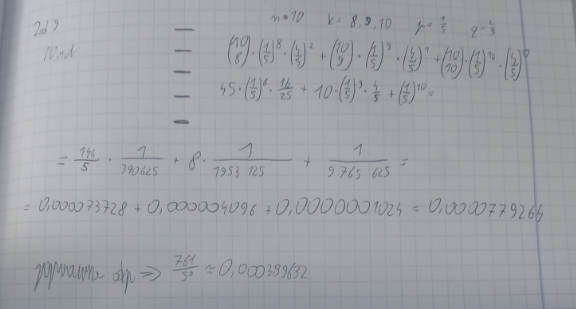 n=10 k=8,9,10 p=1/5 q=4/5
(10 8)·(1/5)^8·(4/5)^2 + (10 9)·(1/5)^9·(4/5)^1 + (10 10)·(1/5)^10·(4/5)^0
45·(1/5)^8·16/25 + 10·(1/5)^9·4/5 + (1/5)^10 =
= 144/5 · 1/390625 + 8· 1/1953 125 + 1/9 765 625 =
= 0,000073728 + 0,000004096 + 0,0000001024 = 0,0000779264
=> 761/5^9 ≈ 0,000389632